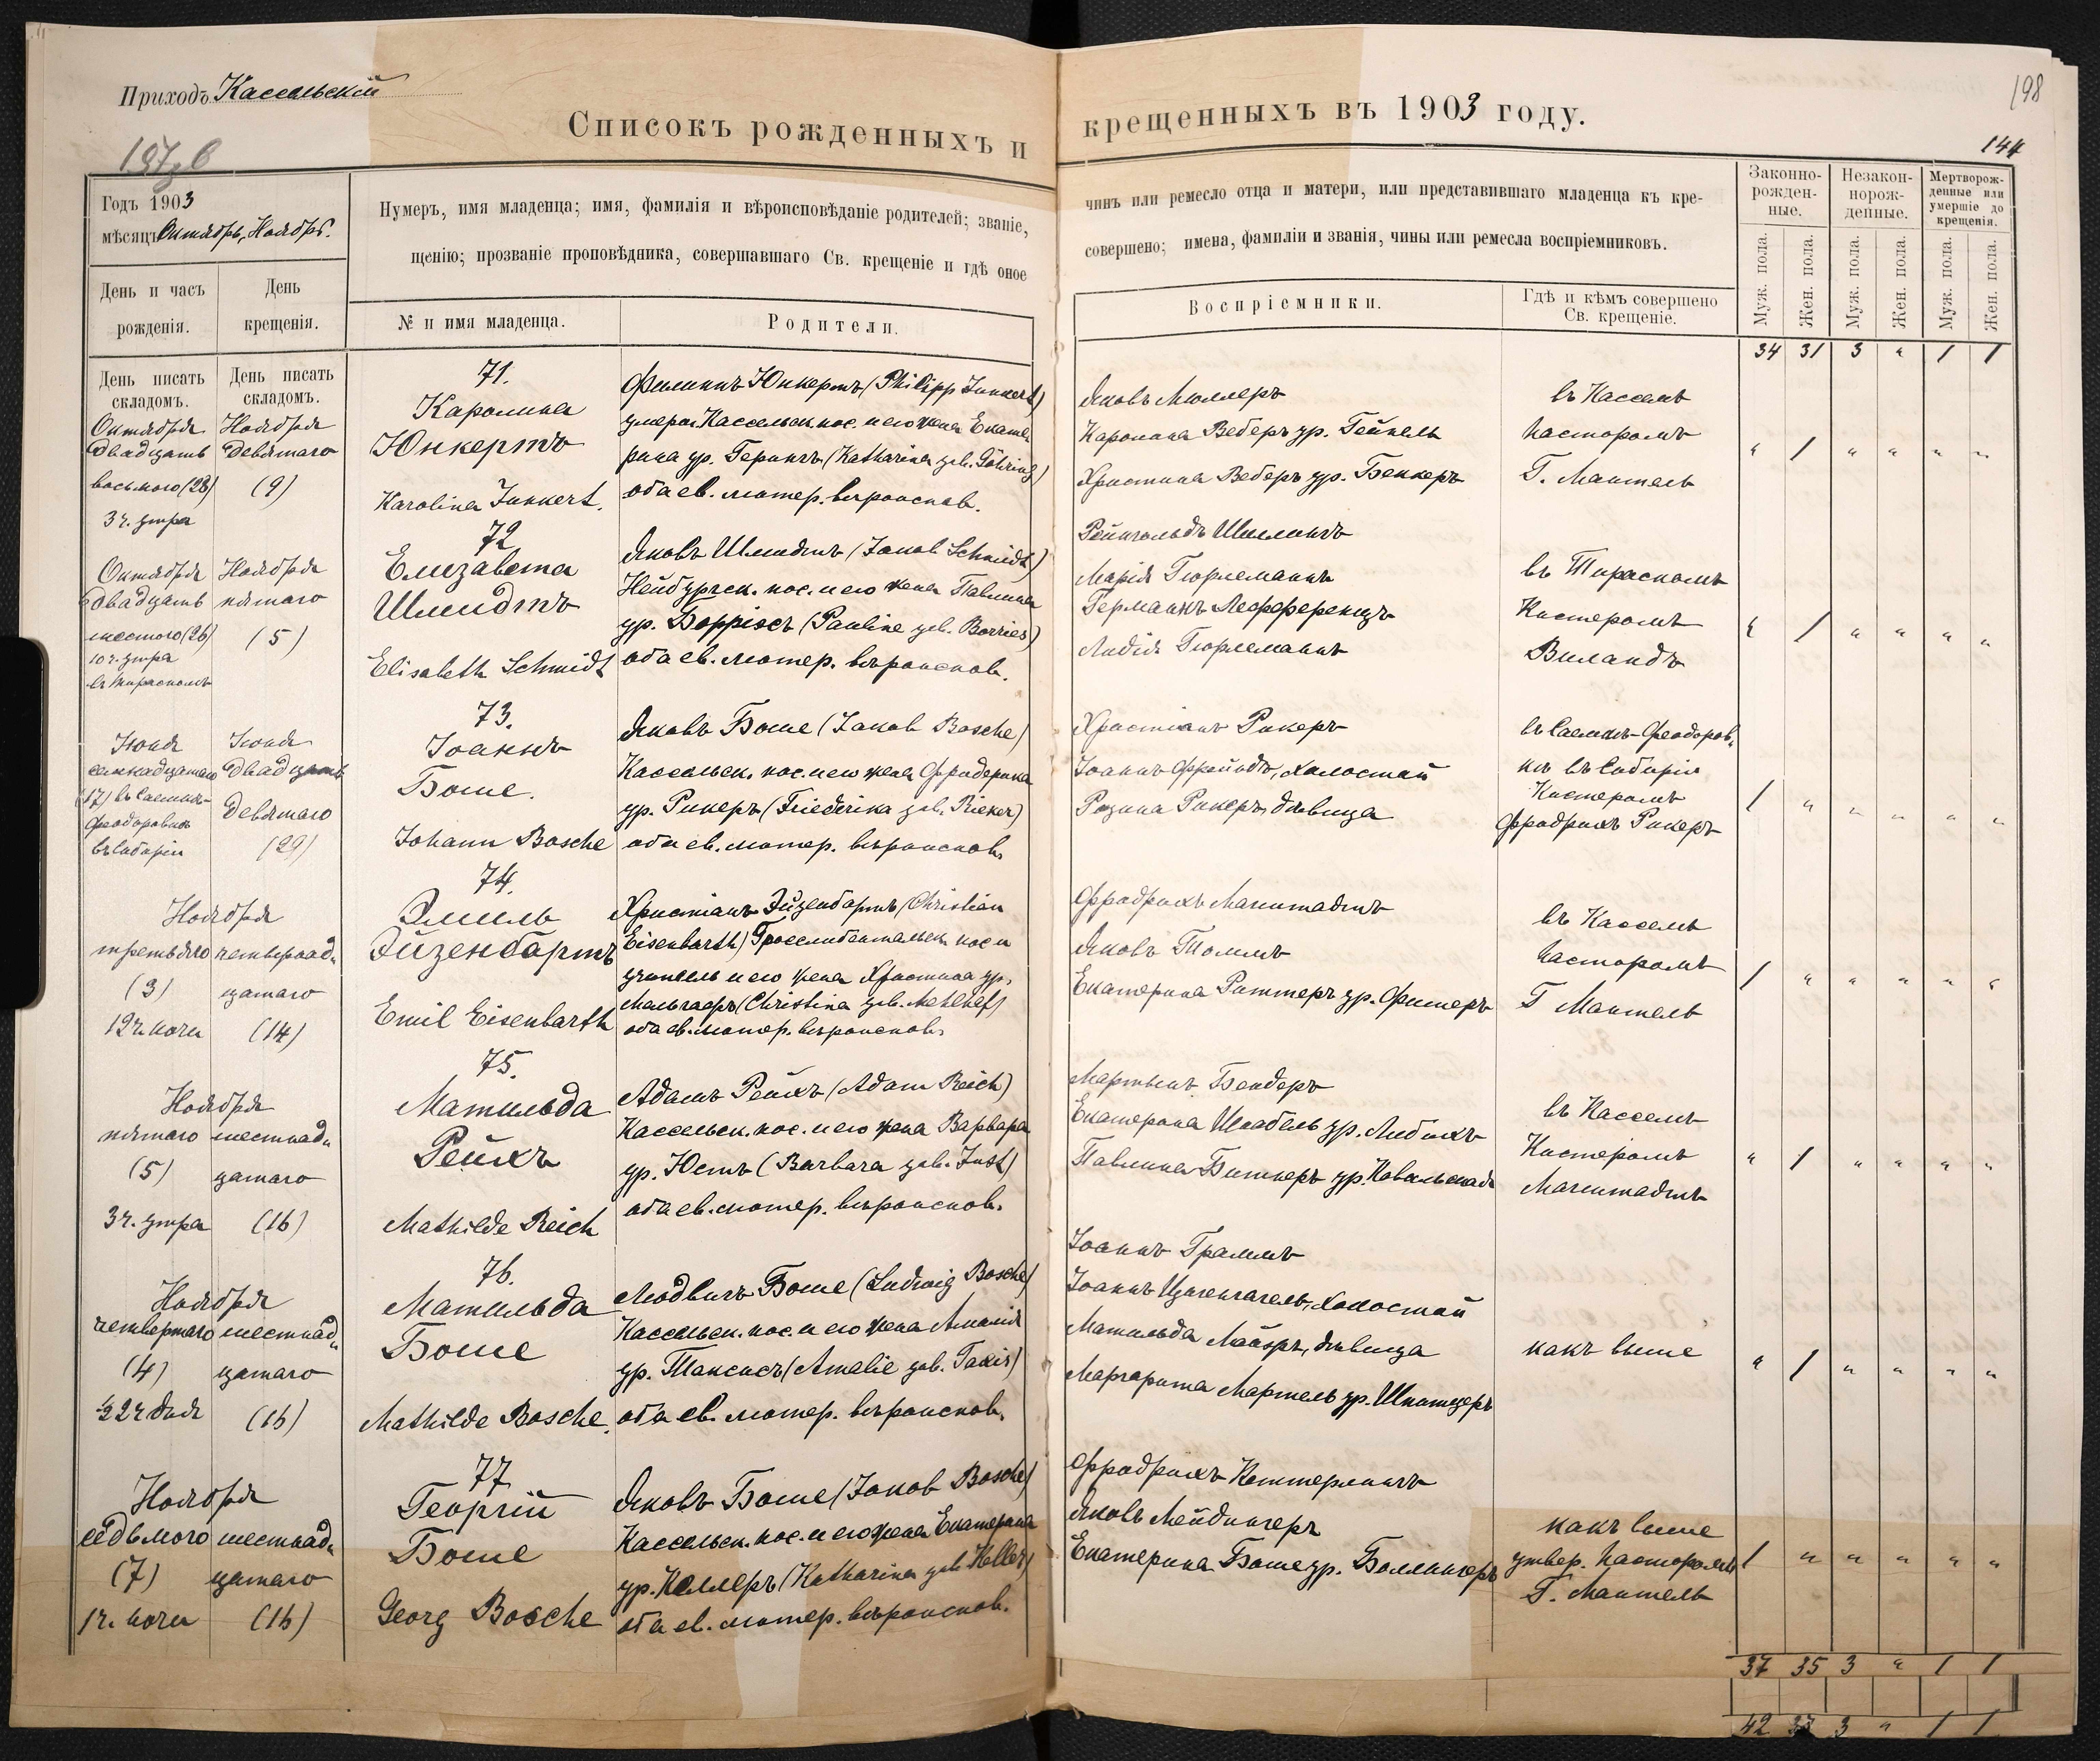 Приходъ Кассельскій
198
Списокъ рожденныхъ и крещенныхъ въ 1903 году.
144
Годъ 1903
мѣсяцъ Октябрь, Ноябрь.
Нумеръ, имя младенца; имя, фамилія и вѣроисповѣданіе родителей; званіе, чинъ или ремесло отца и матери, или представившаго младенца къ кре-
щенію; прозваніе проповѣдника, совершавшаго Св. крещеніе и гдѣ оное совершено; имена, фамиліи и званія, чины или ремесла воспріемниковъ.
Законно-
рожден-
ные.
Незакон-
норож-
денные.
Мертворож-
денные или
умершіе до
крещенія.
День и часъ
рожденія.
День
крещенія.
№ и имя младенца.
Родители.
Воспріемники.
Гдѣ и кѣмъ совершено
Св. крещеніе.
Муж. пола.
Жен. пола.
Муж. пола.
Жен. пола.
Муж. пола.
Жен. пола.
34 31 3 " 1 1
День писать
складомъ.
День писать
складомъ.
Октября
двадцать
восьмого (28)
3 ч. утра
Ноября
девятаго
(9)
71.
Каролина
Юнкертъ
Karolina Junkert.
Филиппъ Юнкертъ (Philipp Junkert)
Кассельск. пос. и его жена Екате-
рина ур. Герингъ (Katharina geb. Göhring)
оба ев. лютер. вѣроисповѣд.
Яковъ Мюллеръ
Каролина Веберъ ур. Гейнель
Христина Веберъ ур. Беккеръ
въ Касселѣ
Пасторомъ
Г. Мантель
" 1 " " " "
Октября
двадцать
шестого (26)
10 ч. утра
въ Тирасполѣ
Ноября
пятаго
(5)
72
Елизавета
Шмидтъ
Elisabeth Schmidt
Яковъ Шмидтъ (Jakob Schmidt)
Нейбургск. пос. и его жена Павлина
ур. Боррисъ (Pauline geb. Borries)
оба ев. лютер. вѣроисповѣд.
Рейнгольдъ Шиллингъ
Марія Гюрлеманнъ
Германъ Леффференцъ
Лидія Гюрлеманнъ
въ Тирасполѣ
Кистеромъ
Виландъ
" 1 " " " "
Іюня
семнадцатаго
(17) въ Саминъ-
Феодоровкѣ
въ Сибири
Іюня
двадцать
девятаго
(29)
73.
Іоаннъ
Боше.
Johann Bosche
Яковъ Боше (Jakob Bosche)
Кассельск. пос. и его жена Фридерика
ур. Рикеръ (Friederika geb. Rieker)
оба ев. лютер. вѣроисповѣд.
Христіанъ Рикеръ
Іоаннъ Фрейндъ, холостой
Розина Рикеръ, дѣвица
Кистеромъ
Фридрихъ Рикеръ
1 " " " " "
Ноября
третьяго
(3)
12 ч. ночи
четырнад-
цатаго
(14)
74.
Эмиль
Эйзенбартъ
Emil Eisenbarth
Христіанъ Эйзенбартъ (Christian
Eisenbarth) Гросслибентальск. пос. и
учитель и его жена Христина ур.
Мельгафъ (Christina geb. Mehlhaf)
оба ев. лютер. вѣроисповѣд.
Фридрихъ Магштадтъ
Яковъ Томмъ
Екатерина Риттеръ ур. Фишеръ
въ Касселѣ
Пасторомъ
Г Мантель
1 " " " " "
Ноября
пятаго
(5)
3 ч. утра
шестнад-
цатаго
(16)
75.
Матильда
Рейхъ
Mathilde Reich
Адамъ Рейхъ (Adam Reich)
Кассельск. пос. и его жена Варвара
ур. Юстъ (Barbara geb. Just)
оба ев. лютер. вѣроисповѣд.
Мартынъ Бендеръ
Екатерина Шнабель ур. Либихъ
Павлина Биткеръ ур. Ковальская
въ Касселѣ
Кистеромъ
Магштадтъ
" 1 " " " "
Ноября
четвертаго
(4)
½2 ч. дня
шестнад-
цатаго
(16)
76.
Матильда
Боше
Mathilde Bosche.
Людвигъ Боше (Ludwig Bosche)
Кассельск. пос. и его жена Амалія
ур. Таксисъ (Amalie geb. Taxis)
оба ев. лютер. вѣроисповѣд.
Іоаннъ Граммъ
Іоаннъ Цигенгагель, холостой
Матильда Майеръ, дѣвица
Маргарита Мартель ур. Шпитцеръ
какъ выше
" 1 " " " "
Ноября
седьмого
(7)
1 ч. ночи
шестнад-
цатаго
(16)
77
Георгій
Боше
Georg Bosche
Яковъ Боше (Jakob Bosche)
Кассельск. пос. и его жена Екатерина
ур. Келлеръ (Katharina geb. Keller)
оба ев. лютер. вѣроисповѣд.
Фридрихъ Кеттерлингъ
Яковъ Лейдингеръ
Екатерина Боше ур. Боллингеръ
какъ выше
утвер. Пасторомъ
Г. Мантель
1 " " " " "
37 35 3 " 1 1
42 3 " 1 1